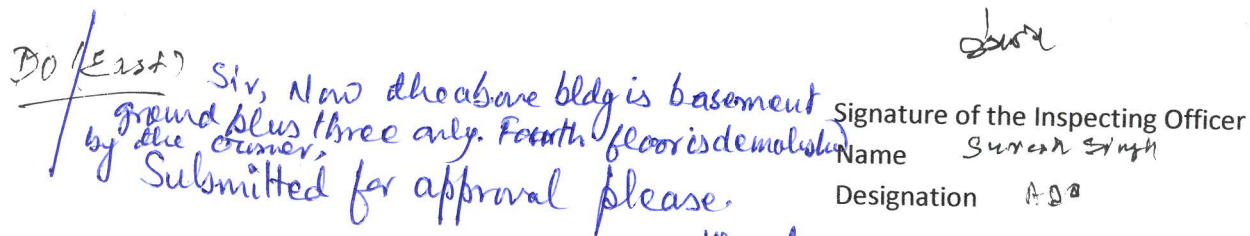 DO (East)
Sir, Now the above bldg is basement
ground plus three only. Fourth floor is demolished
by the owner.
Submitted for approval please.
Signature of the Inspecting Officer
Name Suresh Singh
Designation ADO